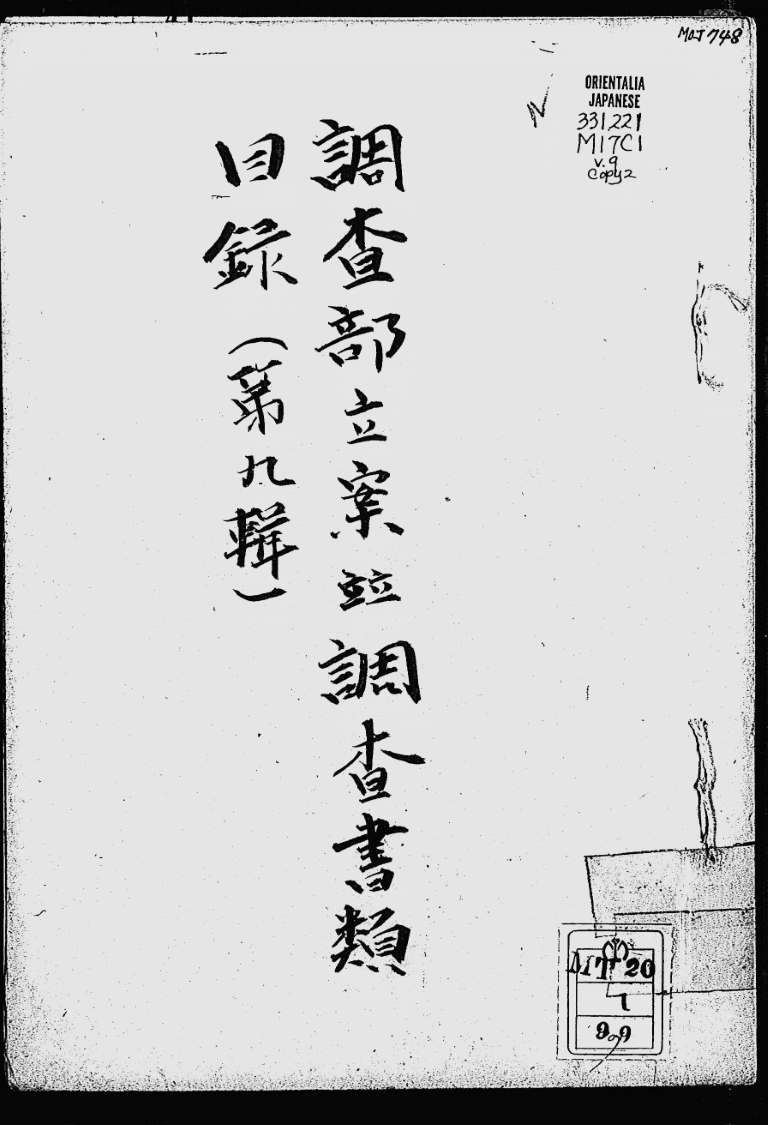 MOJ 748
ORIENTALIA
JAPANESE
331221
M17C1
v.9
Copy 2
調査部立案並調査書類
目録(第九輯)
20
9